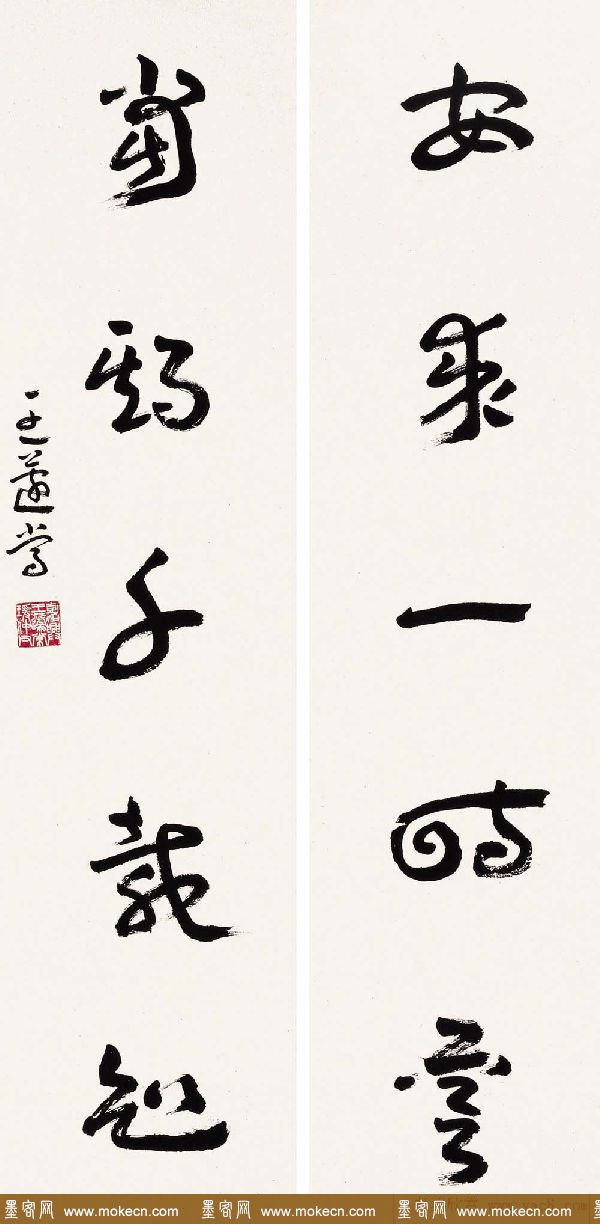 安求一時譽
當期千載知
王蘧常
墨客网 www.mokecn.com 墨客网 www.mokecn.com 墨客网 www.mokecn.com